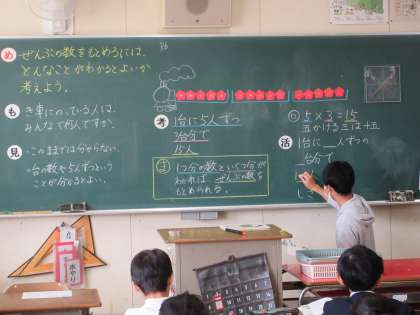 め ぜんぶの数をもとめるには、
どんなことがわかるとよいか
考えよう。
も き車にのっている人は、
みんなで何人ですか。
見 ・このままでは分からない。
・台の数や5人ずつという
ことが分かるとよい。
P6
考 1台に5人ずつ
3台分で
15人
ま 1つ分の数といくつ分が
わかれば ぜんぶの数を
もとめられる。
5×3=15
五かける三は十五
活 1台に__人ずつの
__台分で